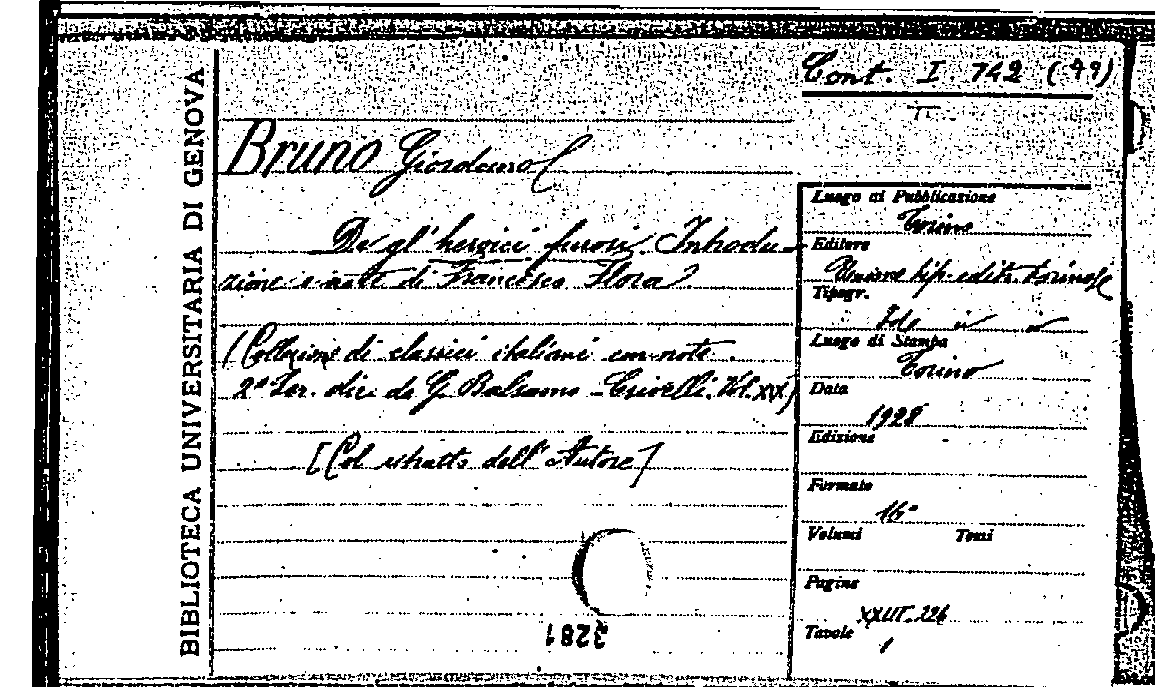 BIBLIOTECA UNIVERSITARIA DI GENOVA
Cont. I. 742 (49)
Bruno Giordano
De gl' heroici furori. Introdu-
zione e note di Francesco Flora.
(Collezione di classici italiani con note.
2ª Ser. dir. da G. Balsamo-Crivelli. Vol. XIX)
[Col ritratto dell'Autore]
3281
Luogo di Pubblicazione
Torino
Editore
Unione tip. editr. torinese
Tipogr.
Id. id. id.
Luogo di Stampa
Torino
Data
1928
Edizione
Formato
16°
Volumi Tomi
Pagine
XXIII-226
Tavole
1